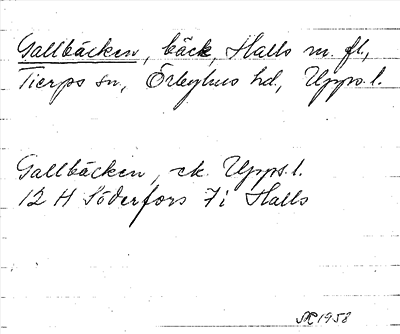 Gallbäcken, bäck, Halls m. fl.,
Tierps sn, Örbyhus hd, Upps. l.
Gallbäcken, ek. Upps. l.
12 H Söderfors 7 i Halls
1958